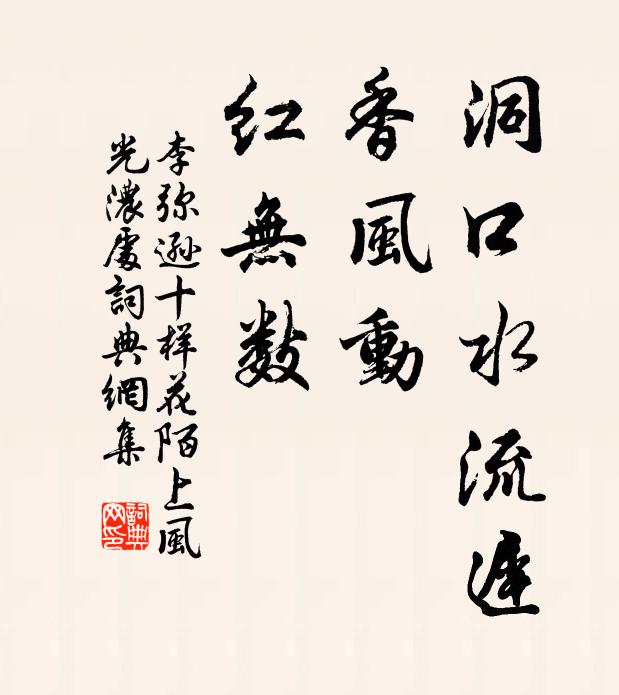 洞口水流遲
香風動
紅無數
李弥遜十样花陌上風
光濃處詞典網集
詞典
网印